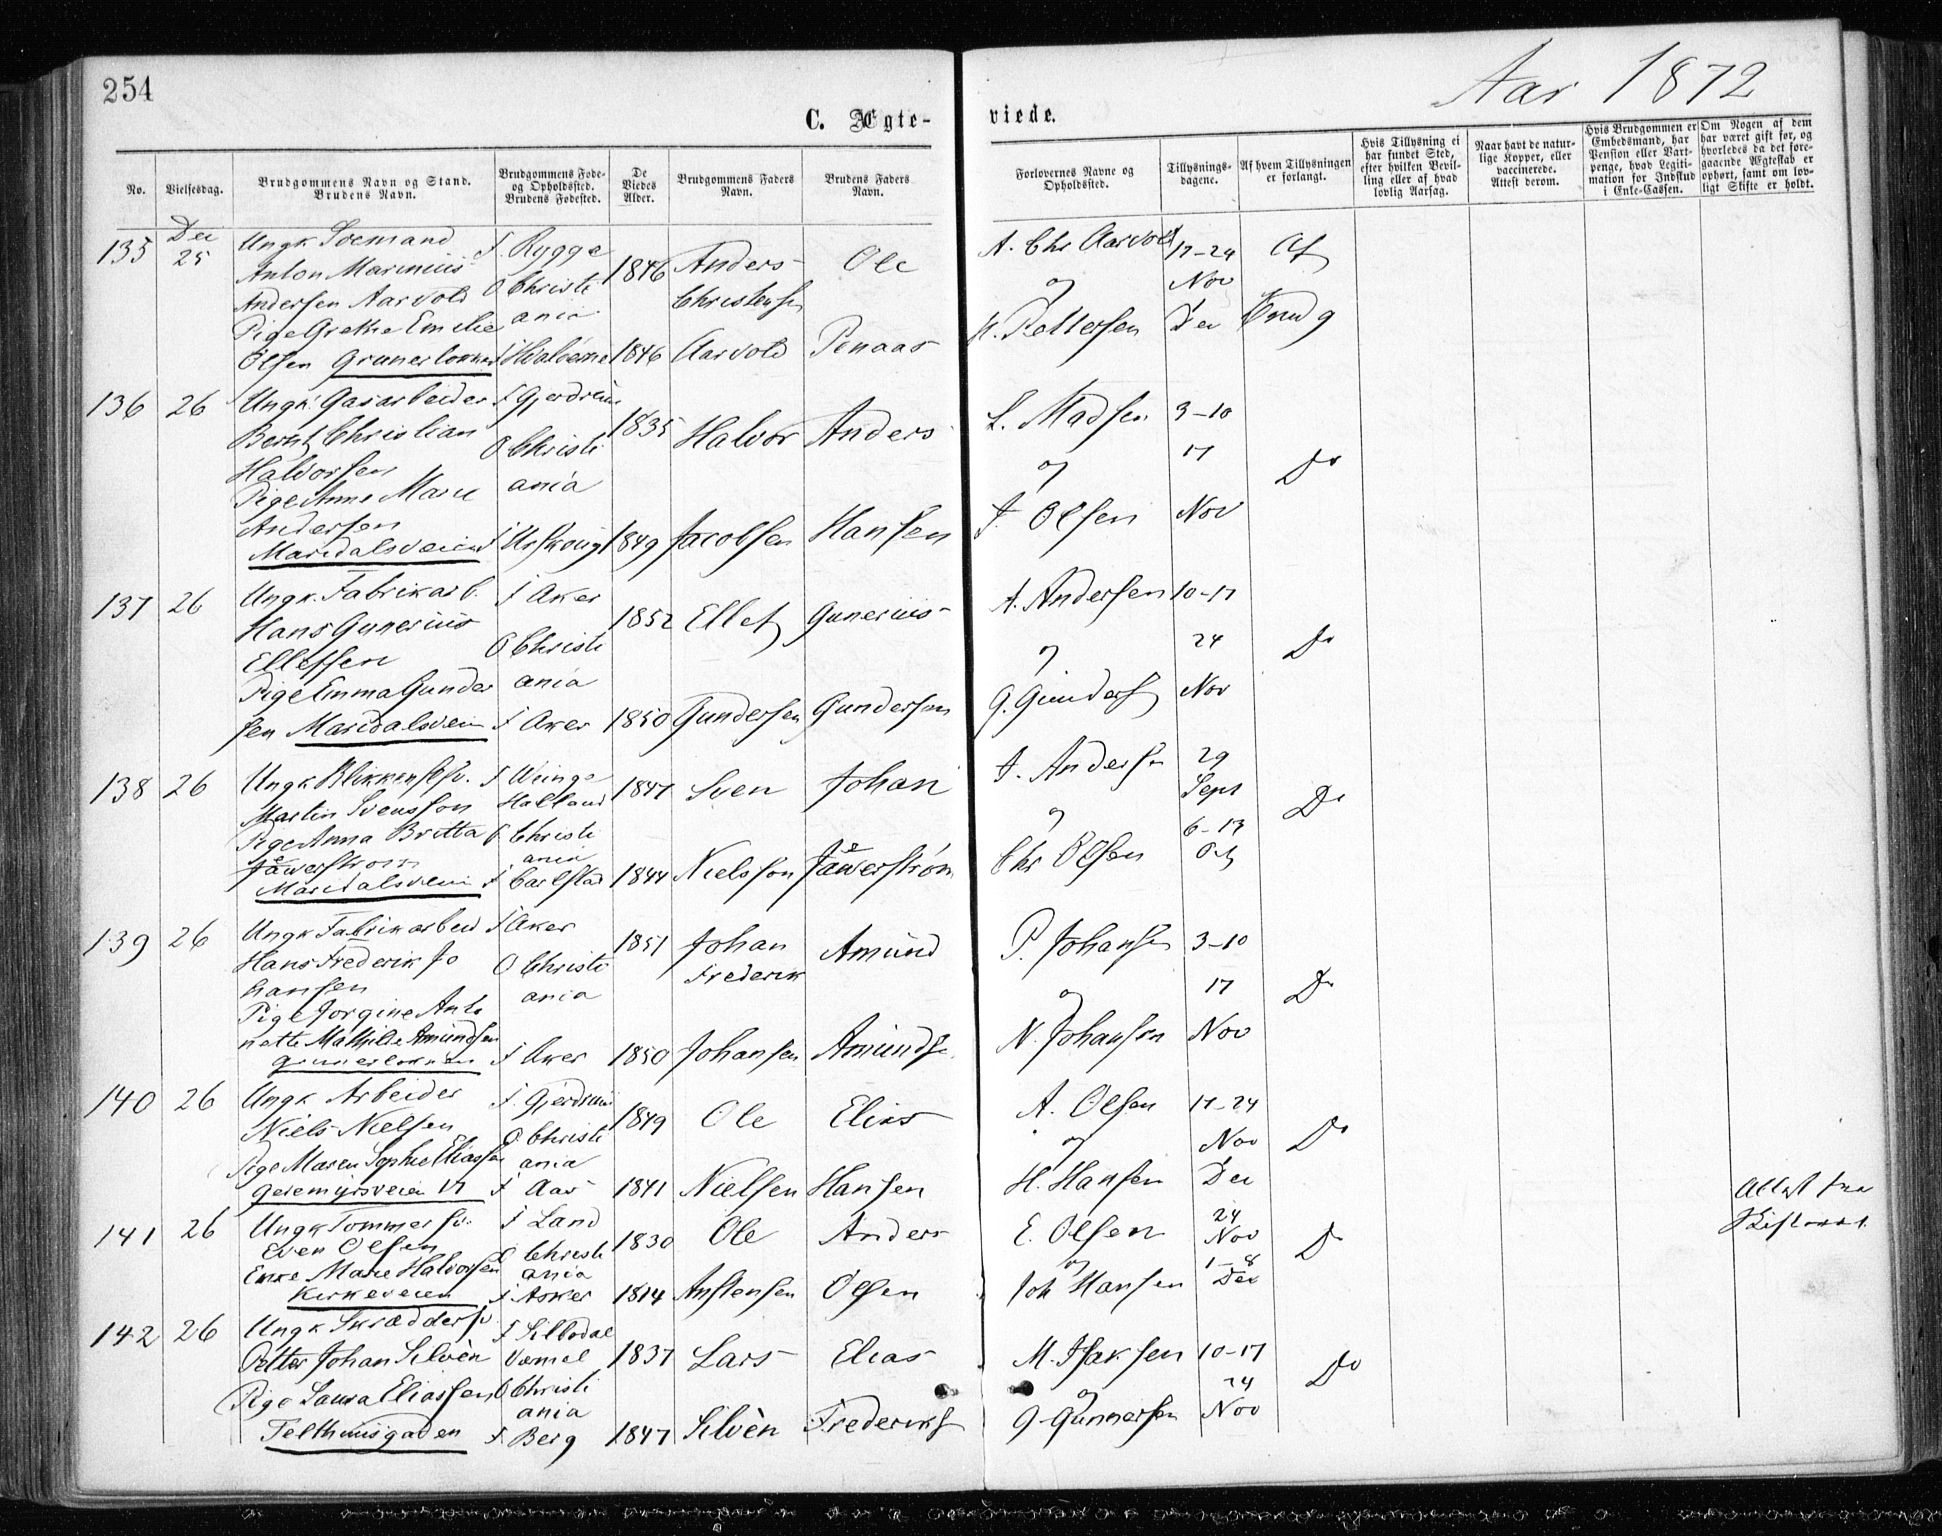 254
Aar 1872
C. Ægte-
viede.
No.
Vielsesdag.
Brudgommens Navn og Stand.
Brudens Navn.
Brudgommens Føde-
og Opholdssted.
Brudens Fødested.
De
Viedes
Alder.
Brudgommens Faders
Navn.
Brudens Faders
Navn.
Forlovernes Navne og
Opholdssted.
Tillysnings-
dagene.
Af hvem Tillysningen
er forlangt.
Hvis Tillysning ei
har fundet Sted,
efter hvilken Bevil-
ling eller af hvad
lovlig Aarsag.
Naar havt de natur-
lige Kopper, eller
vaccinerede.
Attest derom.
Hvis Brudgommen er
Embedsmand, har
Pension eller Vart-
penge, hvad Legiti-
mation for Indskud
i Enke-Cassen.
Om Nogen af dem
har været gift før, og
hvorledes da det fore-
gaaende Ægteskab er
ophørt, samt om lov-
ligt Skifte er holdt.
135
Dec
25
Ungk Sømand
Anton Marinius
Andersen Aarvold
Pige Grethe Emilie
Olsen Grunerløkken
f. Rygge
O Christi
ania
f. Hvaløerne
1846
1846
Anders
Christensen
Aarvold
Ole
Penaas
A. Chr Aarvold
og
H. Pettersen
17-24
Nov
Dec
Af
Brudg
136 26
Ungk. Gasarbeider
Bernt Christian
Halvorsen
Pige Anne Marie
Andersen
Maridalsveien
f Gjerdrum
O Christi
ania
f Urskoug
1835
1849
Halvor
Jacobsen
Anders
Hansen
L. Madsen
og
J. Olsen
3-10
17
Nov
Do
137 26
Ungk. Fabrikarb.
Hans Gunerius
Ellefsen
Pige Emma Gunder
sen Maridalsveien
f Aker
O Christi
ania
f Aker
1852
1850
Ellef
Gundersen
Gunerius
Gundersen
A. Andersen
og
G. Gunders
10-17
24
Nov
Do
138 26
Ungk Blikkensl sv.
Martin Svensson
Pige Anna Britta
Jäwerstrøm
Maridalsveien
f Winge
Halland
O Christi
ania
f Carlstad
1847
1844
Sven
Nielsson
Johan
Jäwerstrøm
J. Andersen
og
Chr Olsen
29
Sept
6-13
Oct
Do
139 26
Ungk Fabrikarbeid
Hans Frederik Jo
hansen
Pige Jorgine Anto
nette Mathilde Amundsen
Grunerløkken
f Aker
O Christi
ania
f Aker
1851
1850
Johan
Frederik
Johansen
Amund
Amundsen
P. Johansen
og
N. Johansen
3-10
17
Nov
Do
140 26
Ungk Arbeider
Niels Nielsen
Pige Maren Sophie Eliassen
Geitemyrsveien 17
f. Gjerdrum
O Christi
ania
f Aas
1849
1841
Ole
Nielsen
Elias
Hansen
A. Olsen
og
H. Hansen
17-24
Nov
Dec
Do
141 26
Ungk Tømmersv.
Even Olsen
Enke Marie Halvorsen
Kirkeveien
f Land
O Christi
ania
f Asker
1830
1814
Ole
Anstensen
Anders
Olsen
E. Olsen
og
Joh Hansen
24
Nov
1-8
Dec
Do
Attest fra
Skifteret.
142 26
Ungk Skræddersv
Petter Johan Silvèn
Pige Laura Eliassen
Telthusgaden
f Silbodal
Vermel
O Christi
ania
f. Berg
1837
1847
Lars
Silvèn
Elias
Frederiks
M. Isaksen
og
G. Gunnersen
10-17
24
Nov
Do